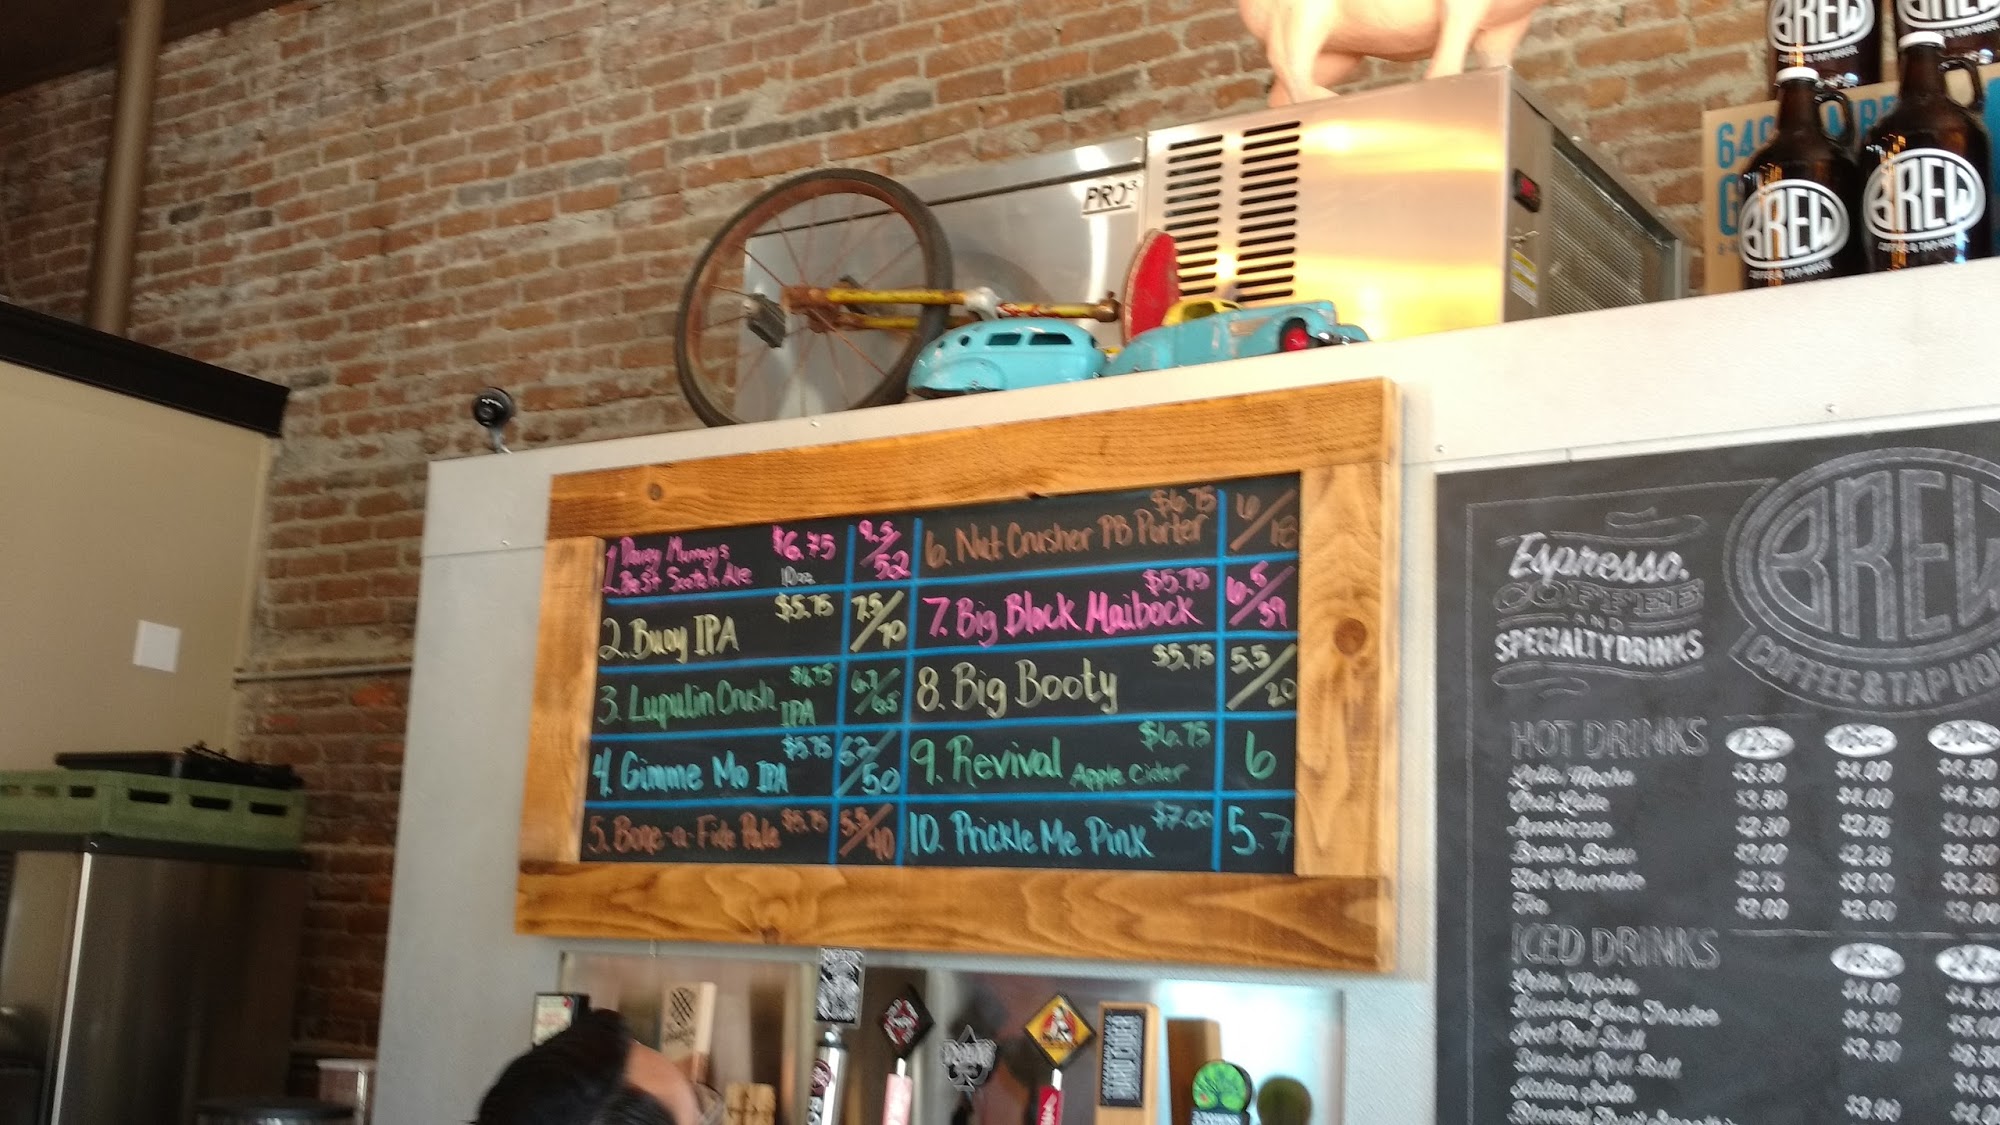 PRO³
BREW
BREW
COFFEE & TAP HOUSE
BREW
COFFEE & TAP HOUSE
64
1. Davy Mumy's $6.75 9.5/52
Best Scotch Ale 10oz
2. Buoy IPA $5.75 7.5/70
3. Lupulin Crush IPA $6.75 6.7/65
4. Gimme Mo IPA $5.75 6.2/50
5. Bone-a-Fide Pale $5.75 5.5/40
6. Nut Crusher PB Porter $6.75 6/18
7. Big Black Maibock $5.75 6.5/39
8. Big Booty $5.75 5.5/20
9. Revival Apple Cider $6.75 6
10. Prickle Me Pink $7.00 5.7
Espresso,
COFFEE
AND
SPECIALTY DRINKS
BREW
COFFEE & TAP HO
HOT DRINKS 12oz 16oz 20oz
Latte, Mocha $3.50 $4.00 $4.50
Chai Latte $3.50 $4.00 $4.50
Americano $2.50 $2.75 $3.00
Brew's Brew $2.00 $2.25 $2.50
Hot Chocolate $2.75 $3.00 $3.25
Tea $2.00 $2.00 $2.00
ICED DRINKS 16oz
Latte, Mocha $4.00 $4.50
$4.50 $5.00
Iced Red Bull $3.50
Blended Red Bull
Italian Soda
$3.00
HARD CIDER